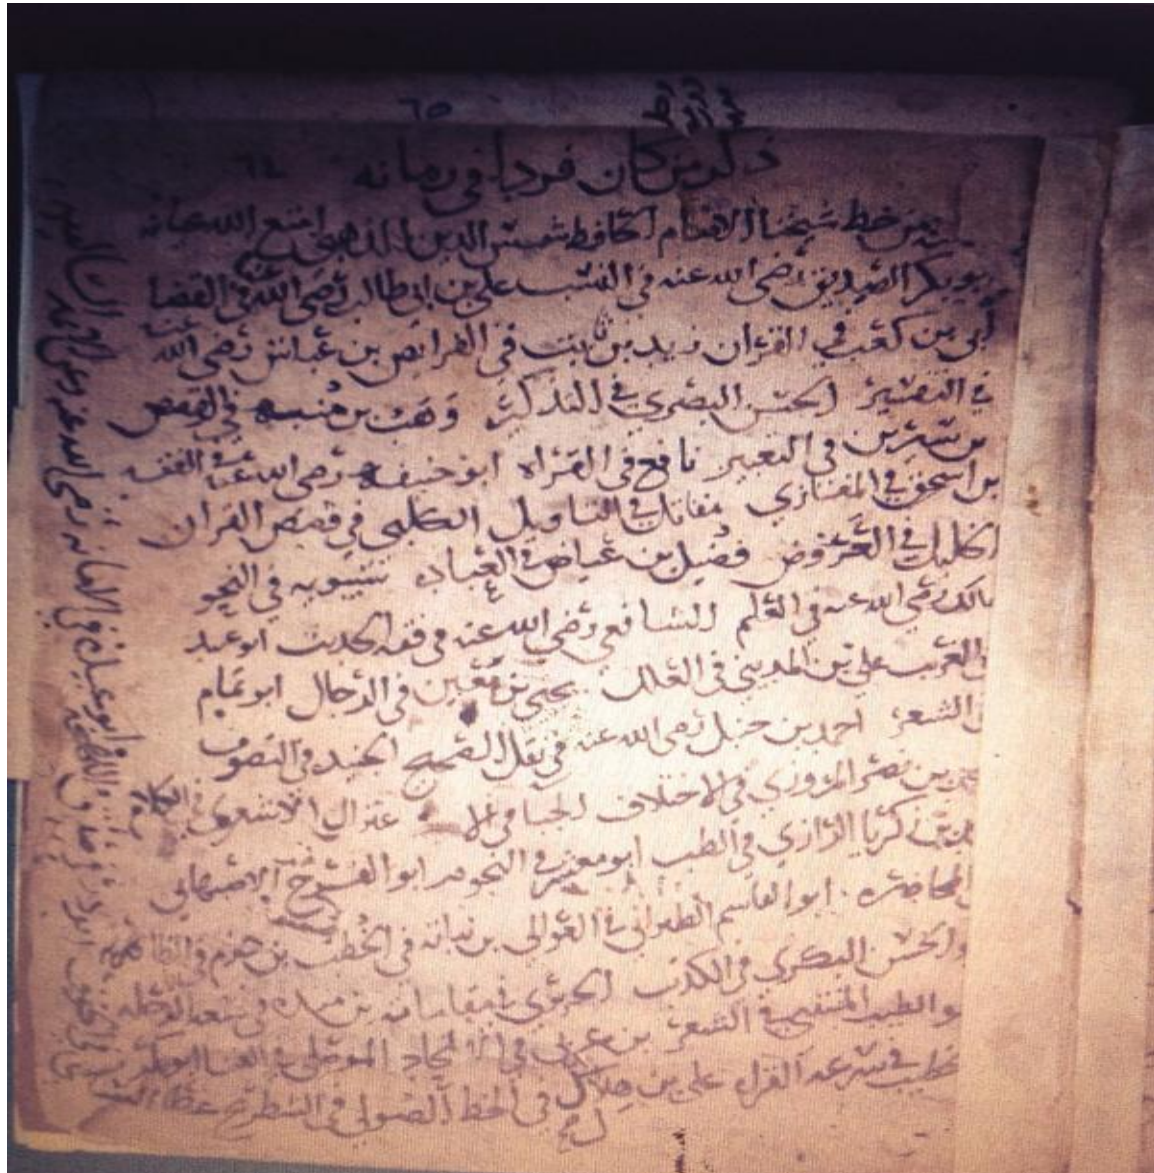 ٦٥
ذكر من كان فردا في زمانه
٦٤
من خط شيخنا الامام الحافظ شمس الدين الذهبي امتع الله بحياته
بو بكر الصديق رضي الله عنه في النسب علي بن ابي طالب رضي الله عنه في القضا
أبي بن كعب في القران زيد بن ثابت في الفرايض بن عباس رضي الله عنه
في التفسير الحسن البصري في التذكير وهب بن منبه في القصص
بن سيرين في التعبير نافع في القراة ابو حنيفة رضي الله عنه في الفقه
بن اسحق في المغازي مقاتل في التاويل الكلبي في قصص القران
الخليل في العروض فضيل بن عياض في العباده سيبويه في النحو
مالك رضي الله عنه في العلم الشافعي رضي الله عنه في فقه الحديث ابو عبيد
الغريب علي بن المديني في العلل يحيى بن معين في الرجال ابو تمام
الشعر احمد بن حنبل رضي الله عنه في نقل الصحيح الجنيد في التصوف
بن نصر المروزي في الاختلاف الجبا في الاعتزال الاشعري في الكلام
بن زكريا الرازي في الطب ابو معشر في النجوم ابو الفرج الاصبهاني
المحاضره ابو القاسم الطبراني في العوالي بن نباته في الخطب بن حزم في الظاهر
والحسن البكري في الكذب الحريري في مقاماته بن منده في سعة الرحله
بو الطيب المتنبي في الشعر بن عربي في الالحاد الموصلي في الغنا ابو بكر
خطيب في سرعه القراه علي بن هلال في الخط الصولي في الشطرنج عطا
وابو عبيده في الامانه رضي الله عنه